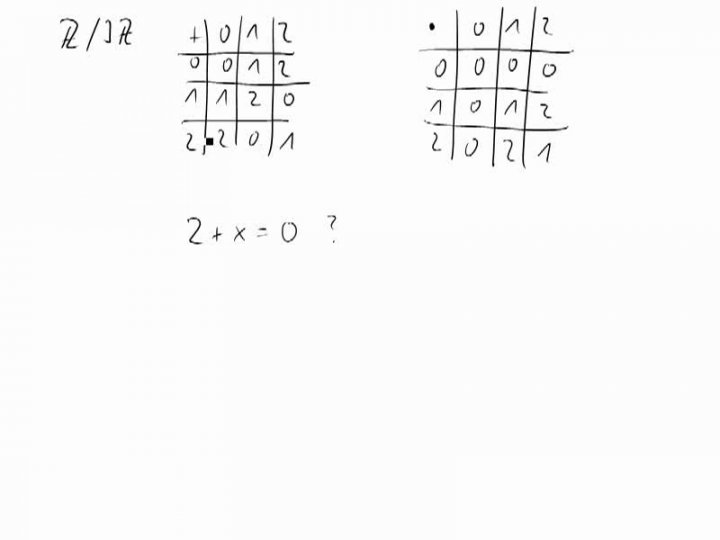 ℤ/3ℤ
+ 0 1 2
0 0 1 2
1 1 2 0
2 2 0 1
· 0 1 2
0 0 0 0
1 0 1 2
2 0 2 1
2 + x = 0 ?